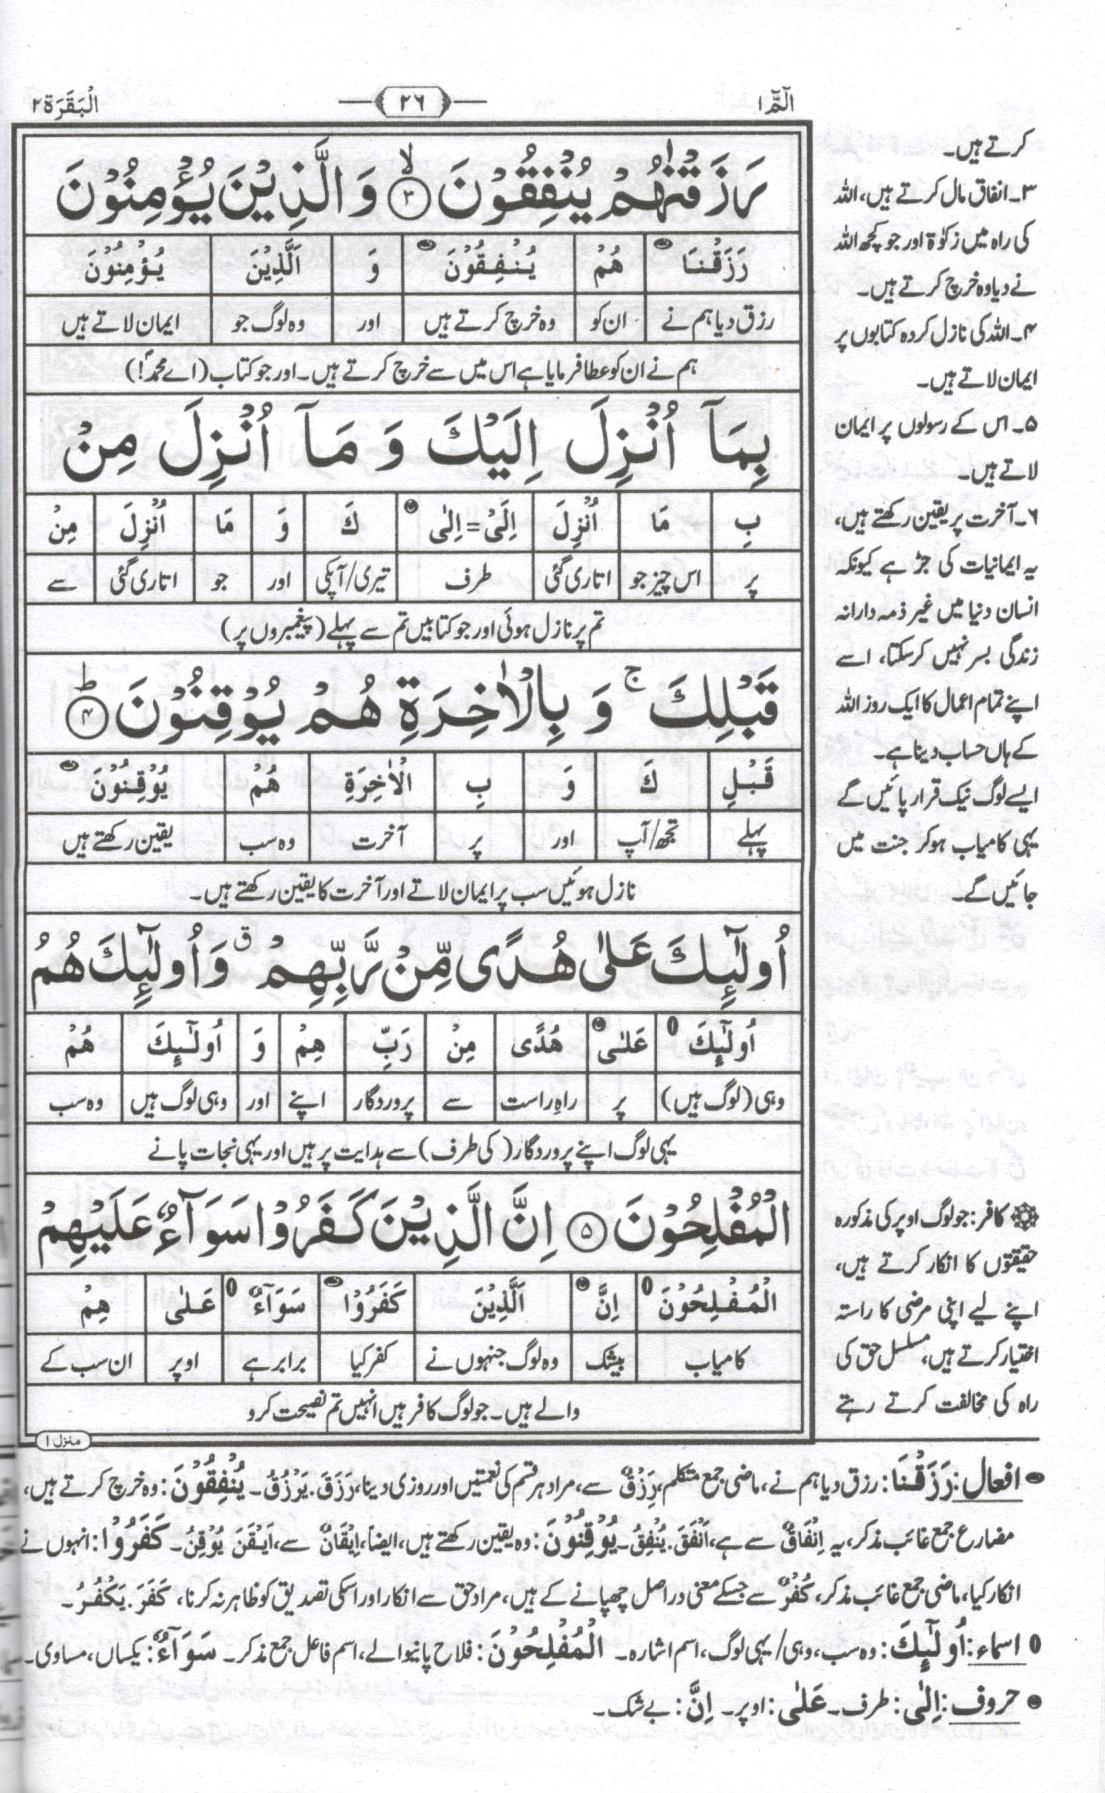 الٓمّٓ ١
٢٦
اَلْبَقَرَة ٢
رَزَقْنٰهُمْ يُنْفِقُوْنَ ۙ ﴿٣﴾ وَ الَّذِيْنَ يُؤْمِنُوْنَ
رَزَقْنَا هُمْ يُنْفِقُوْنَ وَ اَلَّذِيْنَ يُؤْمِنُوْنَ
رزق دیا ہم نے ان کو وہ خرچ کرتے ہیں اور وہ لوگ جو ایمان لاتے ہیں
ہم نے ان کو عطا فرمایا ہے اس میں سے خرچ کرتے ہیں۔ اور جو کتاب (اے محمدؐ!)
بِمَآ اُنْزِلَ اِلَيْكَ وَ مَآ اُنْزِلَ مِنْ
بِ مَا اُنْزِلَ اِلَىْ=اِلٰى كَ وَ مَا اُنْزِلَ مِنْ
پر اس چیز جو اتاری گئی طرف تیری/آپکی اور جو اتاری گئی سے
تم پر نازل ہوئی اور جو کتابیں تم سے پہلے (پیغمبروں پر)
قَبْلِكَ ۚ وَ بِالْاٰخِرَةِ هُمْ يُوْقِنُوْنَ ؕ ﴿٤﴾
قَبْلِ كَ وَ بِ الْاٰخِرَةِ هُمْ يُوْقِنُوْنَ
پہلے تجھ/آپ اور پر آخرت وہ سب یقین رکھتے ہیں
نازل ہوئیں سب پر ایمان لاتے اور آخرت کا یقین رکھتے ہیں۔
اُولٰٓئِكَ عَلٰى هُدًى مِّنْ رَّبِّهِمْ ۗ وَ اُولٰٓئِكَ هُمُ
اُولٰٓئِكَ عَلٰى هُدًى مِنْ رَبِّ هِمْ وَ اُولٰٓئِكَ هُمْ
وہی (لوگ ہیں) پر راہ راست سے پروردگار اپنے اور وہی لوگ ہیں وہ سب
یہی لوگ اپنے پروردگار (کی طرف) سے ہدایت پر ہیں اور یہی نجات پانے
الْمُفْلِحُوْنَ ﴿٥﴾ اِنَّ الَّذِيْنَ كَفَرُوْا سَوَآءٌ عَلَيْهِمْ
الْمُفْلِحُوْنَ اِنَّ اَلَّذِيْنَ كَفَرُوْا سَوَآءٌ عَلٰى هِمْ
کامیاب بیشک وہ لوگ جنہوں نے کفر کیا برابر ہے اوپر ان سب کے
والے ہیں۔ جو لوگ کافر ہیں انہیں تم نصیحت کرو
منزل ١
کرتے ہیں۔
۳۔ انفاق مال کرتے ہیں، اللہ
کی راہ میں زکوٰۃ اور جو کچھ اللہ
نے دیا وہ خرچ کرتے ہیں۔
۴۔ اللہ کی نازل کردہ کتابوں پر
ایمان لاتے ہیں۔
۵۔ اس کے رسولوں پر ایمان
لاتے ہیں۔
۶۔ آخرت پر یقین رکھتے ہیں،
یہ ایمانیات کی جڑ ہے کیونکہ
انسان دنیا میں غیر ذمہ دارانہ
زندگی بسر نہیں کر سکتا، اسے
اپنے تمام اعمال کا ایک روز اللہ
کے ہاں حساب دینا ہے۔
ایسے لوگ نیک قرار پائیں گے
یہی کامیاب ہو کر جنت میں
جائیں گے۔
کافر: جو لوگ اوپر کی مذکورہ
حقیقتوں کا انکار کرتے ہیں،
اپنے لیے اپنی مرضی کا راستہ
اختیار کرتے ہیں، مسلسل حق کی
راہ کی مخالفت کرتے رہتے
افعال: رَزَقْنَا: رزق دیا ہم نے، ماضی جمع متکلم، رِزْقٌ سے، مراد ہر قسم کی نعمتیں اور روزی دینا، رَزَقَ. يَرْزُقُ۔ يُنْفِقُوْنَ: وہ خرچ کرتے ہیں،
مضارع جمع غائب مذکر، یہ اِنْفَاقٌ سے ہے، اَنْفَقَ. يُنْفِقُ۔ يُوْقِنُوْنَ: وہ یقین رکھتے ہیں، ایضاً، اِيْقَانٌ سے، اَيْقَنَ يُوْقِنُ۔ كَفَرُوْا: انہوں نے
انکار کیا، ماضی جمع غائب مذکر، كُفْرٌ سے جسکے معنی دراصل چھپانے کے ہیں، مراد حق سے انکار اور اسکی تصدیق کو ظاہر نہ کرنا، كَفَرَ. يَكْفُرُ۔
اسماء: اُولٰٓئِكَ: وہ سب، وہی/یہی لوگ، اسم اشارہ۔ الْمُفْلِحُوْنَ: فلاح پانیوالے، اسم فاعل جمع مذکر۔ سَوَآءٌ: یکساں، مساوی۔
حروف: اِلٰى: طرف۔ عَلٰى: اوپر۔ اِنَّ: بے شک۔